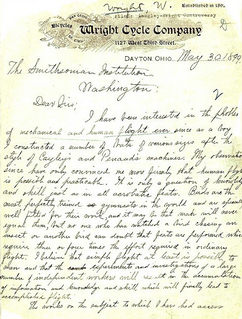 Wright, W.
Established in 189
Bicycles
Wright Cycle Company
1127 West Third Street.
DAYTON, OHIO, May 30, 1899
The Smithsonian Institution
Washington.
Dear Sirs;
I have been interested in the problem
of mechanical and human flight ever since as a boy
I constructed a number of bats of various sizes after the
style of Cayley's and Penaud's machines. My observations
since have only convinced me more firmly that human flight
is possible and practicable. It is only a question of knowledge
and skill just as in all acrobatic feats. Birds are the
most perfectly trained gymnasts in the world and are specially
well fitted for their work, and it may be that man will never
equal them, but no one who has watched a bird chasing an
insect or another bird can doubt that feats are performed which
require three or four times the effort required in ordinary
flight. I believe that simple flight at least is possible to
man and that the experiments and investigations of a large
number of independent workers will result in the accumulation
of information and knowledge and skill which will finally lead to
accomplished flight.
The works on the subject to which I have had access